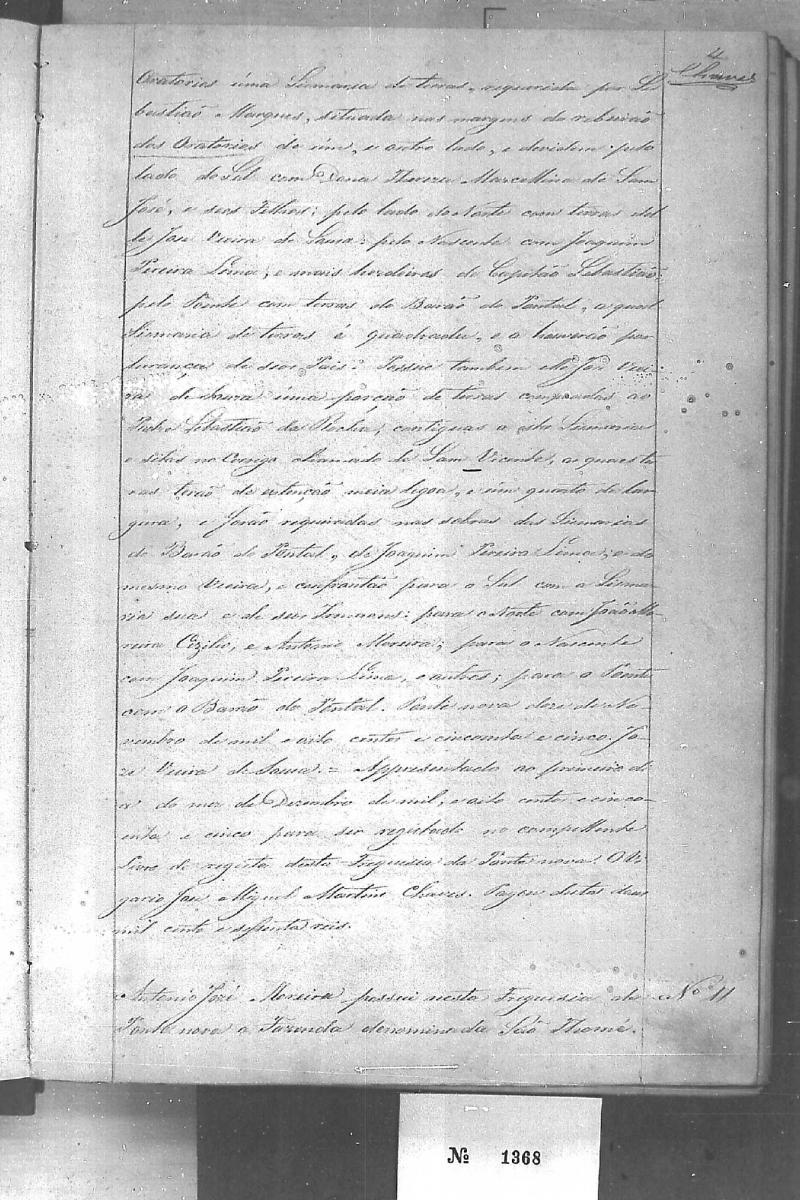 4
Chaves
Oratorios uma Sismaria de terras, requerida por Se
bastião Marques, situada nas margens do rebeirão
dos Oratorios de um, e outro lado, e devidem pelo
lado do Sul com Dona Thereza Marcellina de Sam
José, e seos Filhos; pelo lado do Norte com terras del
le José Vieira de Souza: pelo Nascente com Joaquim
Pereira Lima, e mais herdeiros do Capitão Sebastião,
pelo Poente com terras do Barão do Pontal, a qual
Sismaria de terras é quadrada, e a houverão por
herança de seos Pais. Possue tambem elle José Viei
ra de Souza uma porção de terras compradas ao
Padre Sebastião da Rocha, contiguas a dita Sismaria
e sitas no Corrego chamado de Sam Vicente, as quaes te
ras terão de extenção meia legoa, e um quarto de lar
gura, e forão requiridas nas sobras das Sismarias
do Barão do Pontal, de Joaquim Pereira Lima, e do
mesmo Vieira, e confrontão para o Sul com a Sisma
ria sua e de seos Irmaons: para o Norte com João Mo
reira, e Antonio Moreira; para o Nascente
com Joaquim Pereira Lima, e outros; para o Poente
com o Barão do Pontal. Ponte nova doze de No
vembro de mil e oito centos e cincoenta e cinco. Jo
zé Vieira de Souza. = Appresentado ao primeiro di
a do mez de Dezembro de mil, e oito centos e cinco-
enta e cinco para ser registado no compettente
Livro de registo desta Freguesia da Ponte nova. O Vi
gario José Miguel Martins Chaves. Pagou destas dous
mil cento e sessenta reis.
Antonio José Moreira possui nesta Freguesia de No 11
Ponte nova a Fazenda denominada São Thomé.
№ 1368